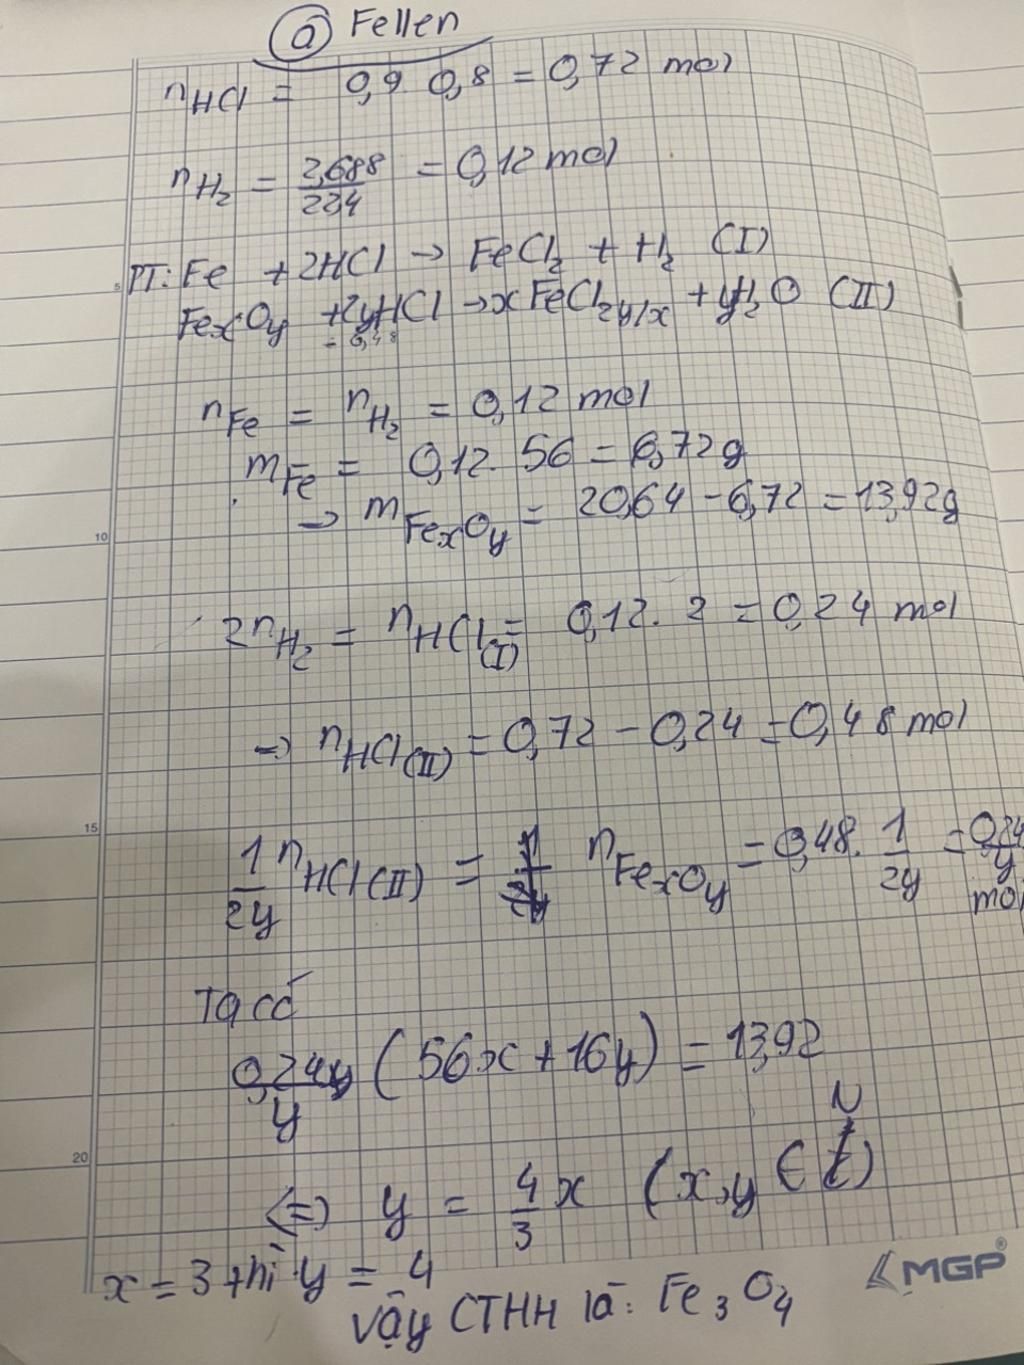 @ Fellen
nHCl = 0,9. 0,8 = 0,72 mol
nH₂ = 2,688/22,4 = 0,12 mol
5
PT: Fe + 2HCl → FeCl₂ + H₂ (I)
FexOy + 2yHCl → xFeCl2y/x + yH₂O (II)
= 0,48
nFe = nH₂ = 0,12 mol
mFe = 0,12. 56 = 6,72g
→ mFexOy = 20,64 - 6,72 = 13,92g
10
2nH₂ = nHCl(I) = 0,12. 2 = 0,24 mol
→ nHCl(II) = 0,72 - 0,24 = 0,48 mol
15
1/2y nHCl(II) = nFexOy = 0,48. 1/2y = 0,24/y mol
Ta có
0,24/y (56x + 16y) = 13,92
20
<=> y = 4/3 x (x,y ∈ N)
x = 3 thì y = 4
Vậy CTHH là: Fe₃O₄
MGP®